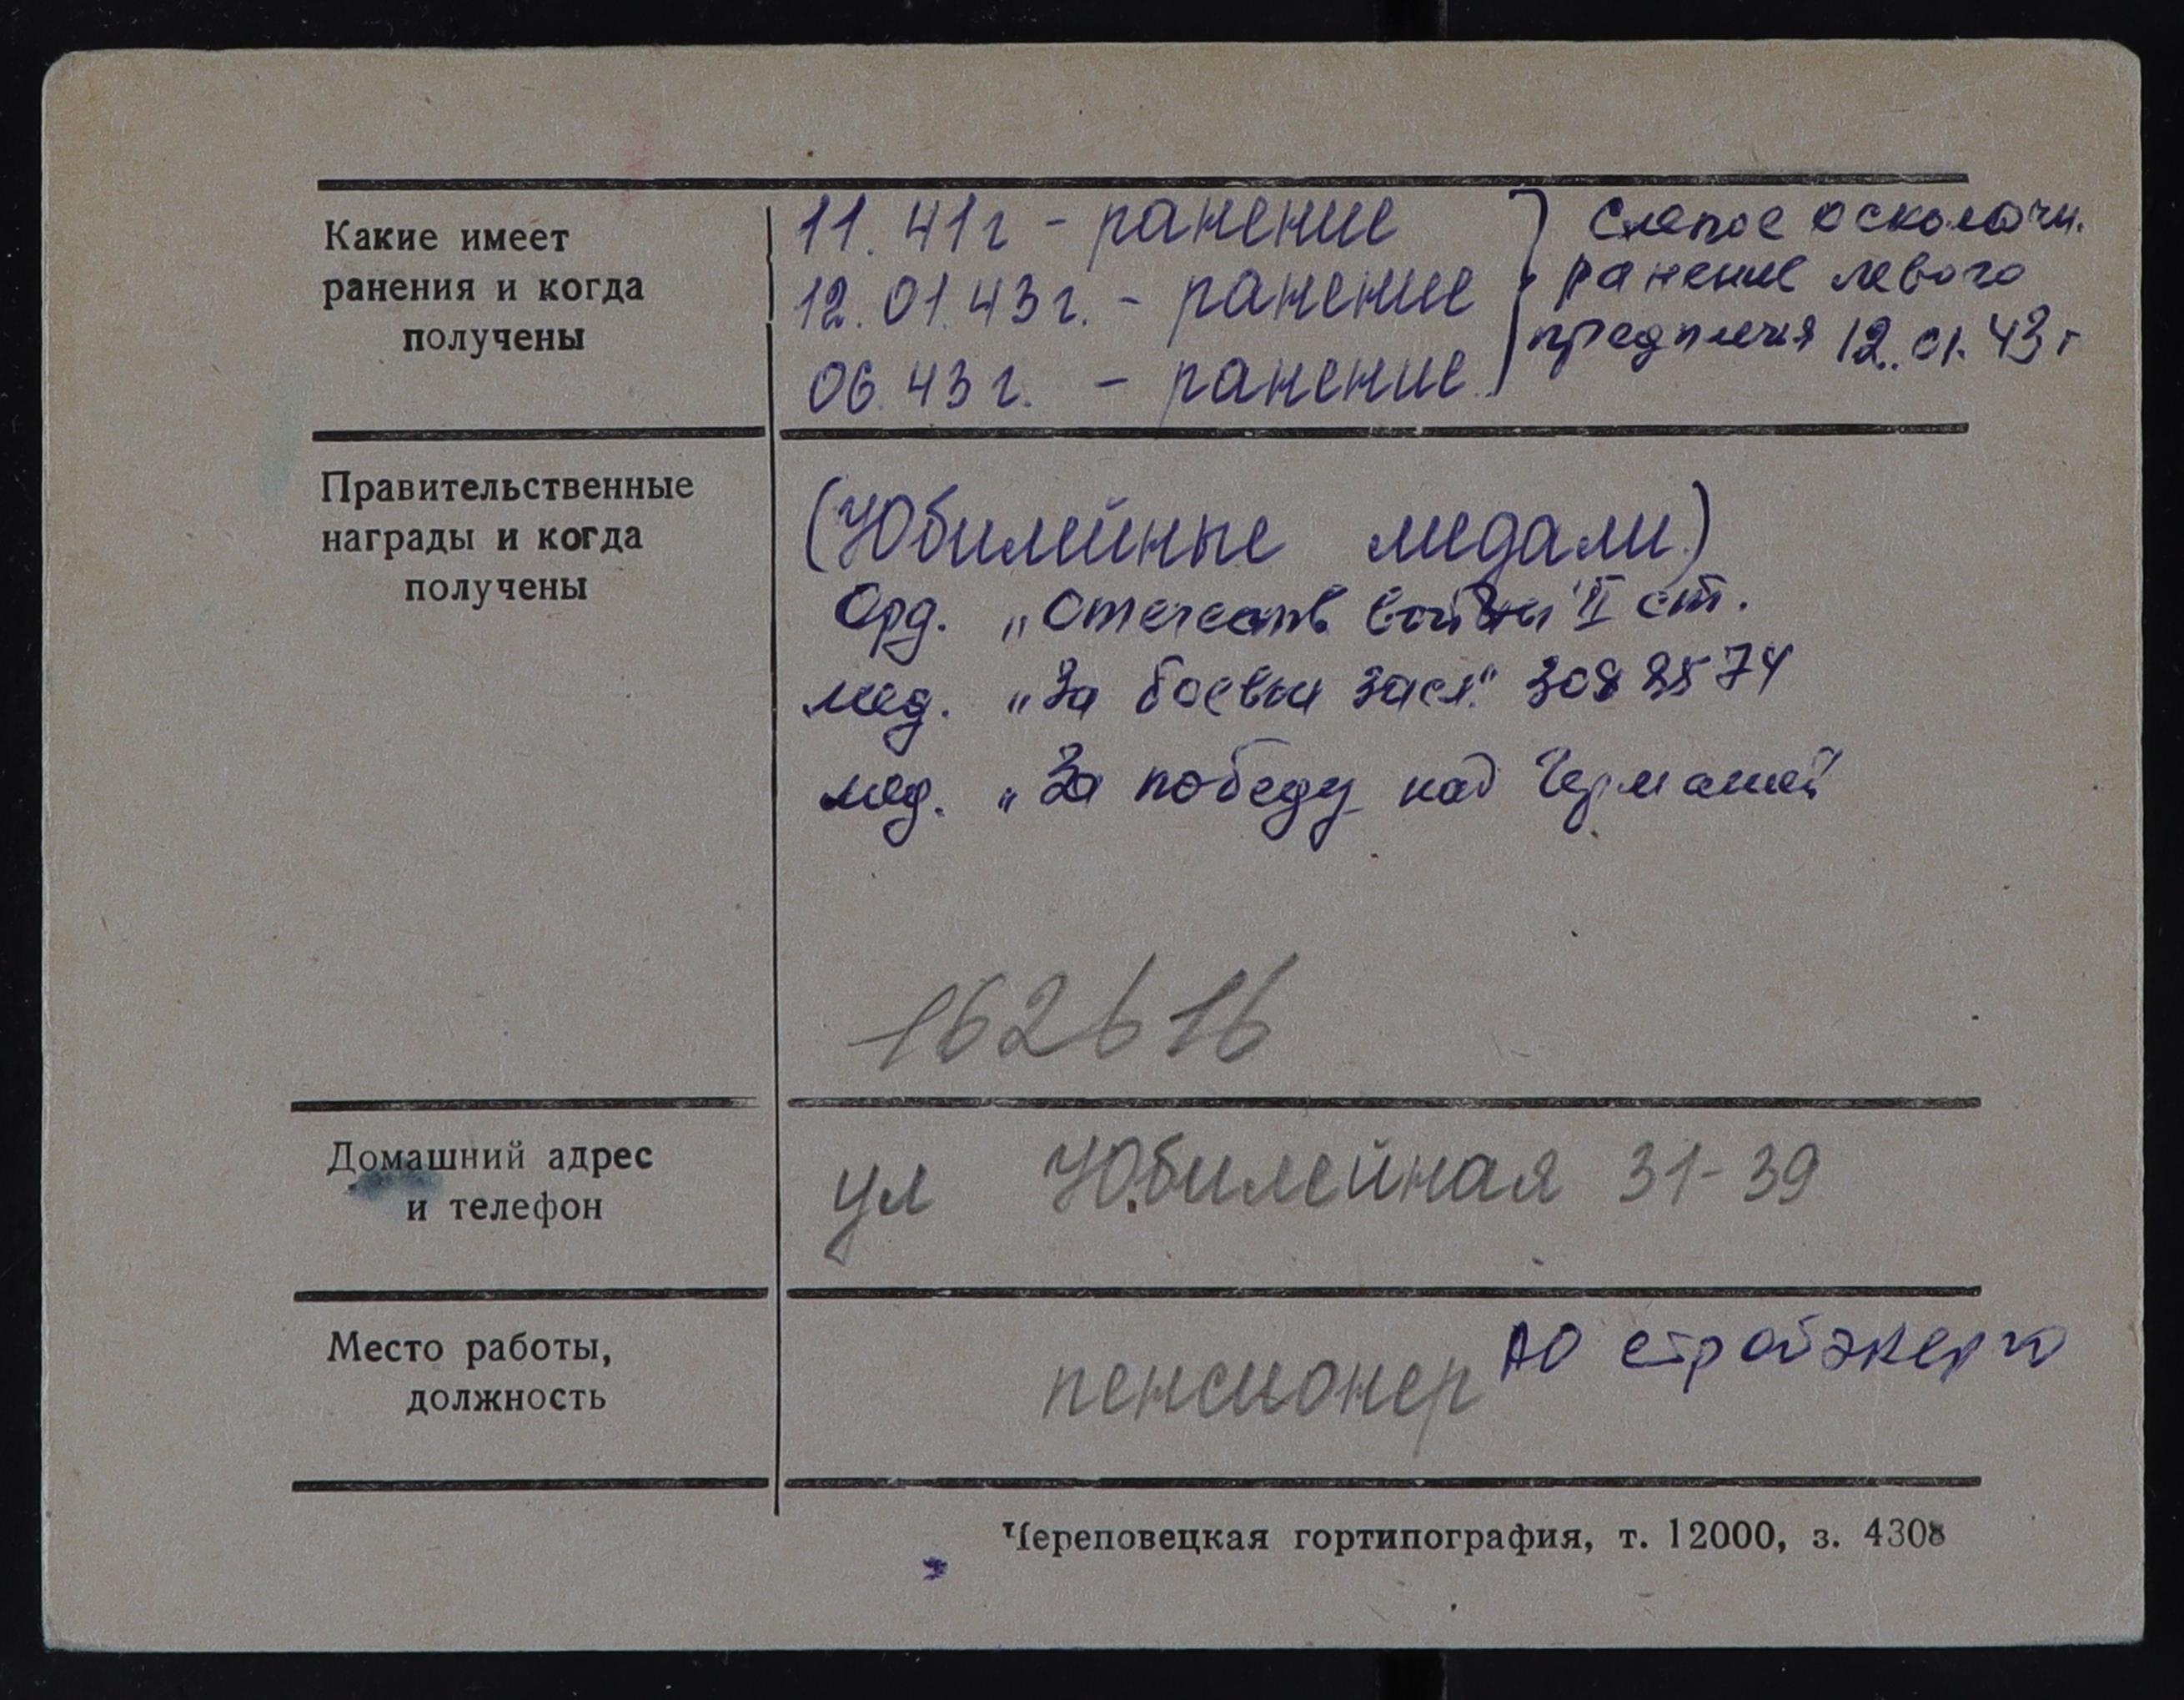 Какие имеет
ранения и когда
получены
11.41г - ранение
12.01.43г. - ранение
06.43г. - ранение
Слепое осколочн.
ранение левого
предплечия 12.01.43г
Правительственные
награды и когда
получены
(Юбилейные медали)
Орд. „Отечеств войны" II ст.
мед. „За боевые засл." 3088574
мед. „За победу над Германией
162616
Домашний адрес
и телефон
ул Юбилейная 31-39
Место работы,
должность
пенсионер АО стройэнерго
Череповецкая гортипография, т. 12000, з. 4308